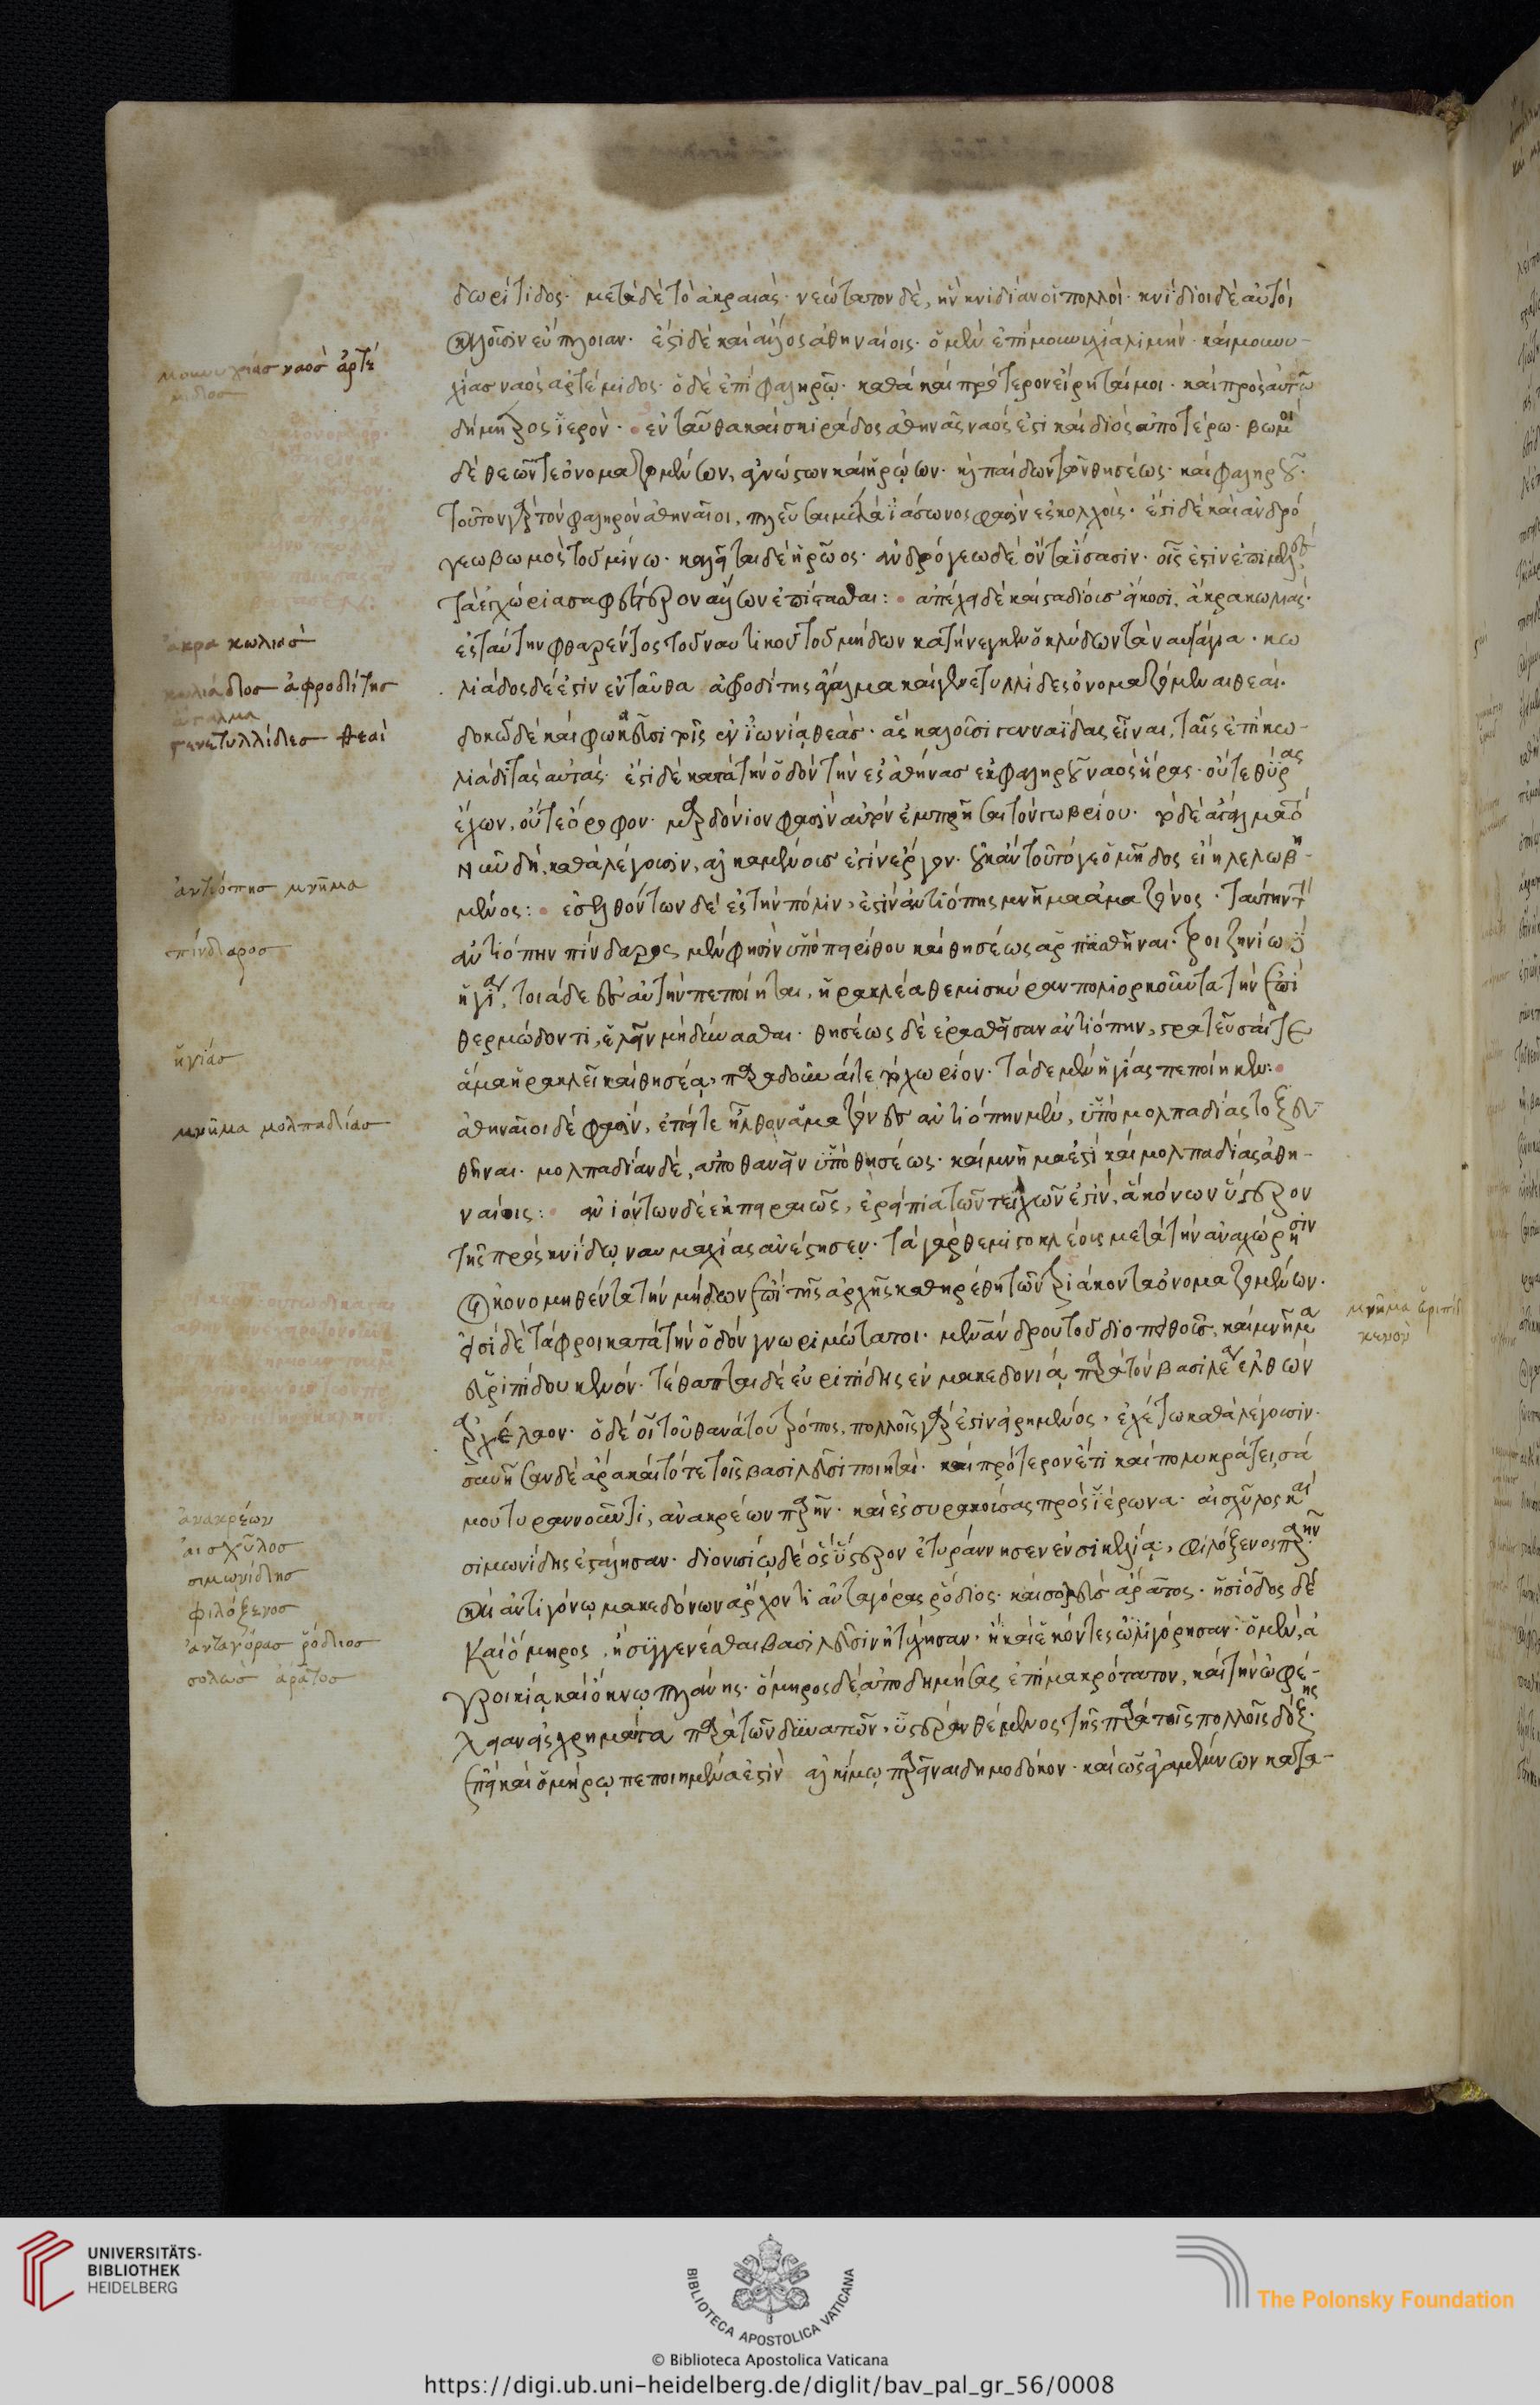 δωρίτιδος· μετὰ δὲ τὸ ἀκραίας· νεώτατον δὲ, ἣν κνιδίαν οἱ πολλοὶ· κνίδιοι δὲ αὐτοὶ
καλοῦσιν εὔπλοιαν· ἔστι δὲ καὶ ἄλλος ἀθηναίοις· ὁ μὲν ἐπὶ μουνυχία λιμὴν· καὶ μουνυ-
χίας ναὸς ἀρτέμιδος· ὁ δὲ ἐπὶ φαληρῷ· καθὰ καὶ πρότερον εἴρηταί μοι· καὶ πρὸς αὐτῷ
δήμητρος ἱερόν· ἐνταῦθα καὶ σκιράδος ἀθηνᾶς ναός ἐστι καὶ διὸς ἀποτέρω· βωμοὶ
δὲ θεῶν τε ὀνομαζομένων ἀγνώστων καὶ ἡρώων· καὶ παίδων τῶν θησέως· καὶ φαληροῦ·
τοῦτον γὰρ τὸν φαληρὸν ἀθηναῖοι, πλεῦσαι μετὰ ἰάσωνος φασὶν ἐς κολχοὺς· ἔστι δὲ καὶ ἀνδρό
γεω βωμὸς τοῦ μίνω· καλεῖται δὲ ἥρωος· ἀνδρόγεω δὲ ὄντα ἴσασιν· οἷς ἐστὶν ἐπιμελὲς
τὰ ἐγχώρια σαφέστερον ἄλλων ἐπίστασθαι: ἀπέχει δὲ καὶ σταδίους εἴκοσι, ἄκρα κωλιάς·
ἐς ταύτην φθαρέντος τοῦ ναυτικοῦ τοῦ μήδων κατήνεγκεν ὁ κλύδων τὰ ναυάγια· κω
λιάδος δέ ἐστιν ἐνταῦθα ἀφροδίτης ἄγαλμα καὶ γενετυλλίδες ὀνομαζόμεναι θεαί·
δοκῶ δὲ καὶ φωκαεῦσι τοῖς ἐν ἰωνίᾳ θεὰς· ἃς καλοῦσι γενναΐδας εἶναι, ταῖς ἐπὶ κω-
λιάδι τὰς αὐτάς· ἔστι δὲ κατὰ τὴν ὁδὸν τὴν ἐς ἀθήνας ἐκ φαληροῦ ναὸς ἥρας· οὔτε θύρας
ἔχων, οὔτε ὄροφον· μαρδόνιον φασὶν αὐτὸν ἐμπρῆσαι τὸν γωβρίου· τὸ δὲ ἄγαλμα τὸ
νῦν δὴ, καθὰ λέγουσιν, ἀλκαμένους ἐστὶν ἔργον· οὐκ ἂν τοῦτό γε ὁ μῆδος εἴη λελωβη-
μένος: ἐσελθόντων δὲ ἐς τὴν πόλιν, ἐστὶν ἀντιόπης μνῆμα ἀμαζόνος· ταύτην τὴν
ἀντιόπην πίνδαρος μέν φησιν ὑπὸ πειρίθου καὶ θησέως ἁρπασθῆναι· τροιζηνίῳ δὲ
ἡγίᾳ, τοιάδε ἐς αὐτὴν πεποίηται, ἡρακλέα θεμισκύραν πολιορκοῦντα τὴν ἐπὶ
θερμώδοντι, ἑλεῖν μὴ δύνασθαι· θησέως δὲ ἐρασθεῖσαν ἀντιόπην, στρατεῦσαι γὰρ
ἅμα ἡρακλεῖ καὶ θησέα, παραδοῦναί τε τὸ χωρίον· τάδε μὲν ἡγίας πεποίηκεν:
ἀθηναῖοι δέ φασιν, ἐπεί τε ἦλθον ἀμαζόνες ἀντιόπην μὲν, ὑπὸ μολπαδίας τοξευ
θῆναι· μολπαδίαν δὲ, ἀποθανεῖν ὑπὸ θησέως· καὶ μνῆμά ἐστι καὶ μολπαδίας ἀθη-
ναίοις: ἀνιόντων δὲ ἐκ πειραιῶς, ἐρείπια τῶν τειχῶν ἐστὶν, ἃ κόνων ὕστερον
τῆς πρὸς κνίδῳ ναυμαχίας ἀνέστησεν· τὰ γὰρ θεμιστοκλέους μετὰ τὴν ἀναχώρησιν
οἰκονομηθέντα τὴν μήδων ἐπὶ τῆς ἀρχῆς καθηρέθη τῶν τριάκοντα ὀνομαζομένων·
εἰσὶ δὲ τάφροι κατὰ τὴν ὁδὸν γνωριμώτατοι· μενάνδρου τοῦ διοπείθους, καὶ μνῆμα
εὐριπίδου κενόν· τέθαπται δὲ εὐριπίδης ἐν μακεδονίᾳ παρὰ τὸν βασιλέα ἐλθὼν
ἀρχέλαον· ὁ δέ οἱ τοῦ θανάτου τρόπος, πολλοῖς γάρ ἐστιν εἰρημένος, ἐχέτω καθὰ λέγουσιν·
συνῆσαν δὲ ἄρα καὶ τότε τοῖς βασιλεῦσι ποιηταὶ· καὶ πρότερον ἔτι καὶ πολυκράτει, σά
μου τυραννοῦντι, ἀνακρέων παρῆν· καὶ ἐς συρακούσας πρὸς ἱέρωνα· αἰσχύλος καὶ
σιμωνίδης ἐστάλησαν· διονυσίῳ δὲ ὃς ὕστερον ἐτυράννησεν ἐν σικελίᾳ, φιλόξενος παρῆν
καὶ ἀντιγόνῳ μακεδόνων ἄρχοντι ἀνταγόρας ῥόδιος· καὶ σολεὺς ἄρατος· ἡσίοδος δὲ
καὶ ὅμηρος, ἢ συγγενέσθαι βασιλεῦσιν ἠτύχησαν· ἢ καὶ ἑκόντες ὠλιγώρησαν· ὁ μὲν, ἀ
γροικίᾳ καὶ ὄκνῳ πλάνης· ὅμηρος δὲ, ἀποδημήσας ἐπὶ μακρότατον, καὶ τὴν ὠφέ-
λειαν εἰς χρήματα παρὰ τῶν δυνατῶν, ὑστέραν θέμενος τῆς παρὰ τοῖς πολλοῖς δόξης·
ἐπεὶ καὶ ὁμήρῳ πεποιημένα ἐστὶν ἀλκίνῳ παρεῖναι δημόδοκον· καὶ ὡς ἀγαμέμνων κατα-
μουνυχίας ναὸσ ἀρτέ
μιδοσ
ἄκρα κωλιασ
κωλιάδοσ ἀφροδίτησ
ἄγαλμα
γενετυλλίδεσ θεαὶ
ἀντιόπησ μνῆμα
πίνδαροσ
ἡγίασ
μνῆμα μολπαδίασ
μνῆμα εὐριπίδ
κενὸν
ἀνακρέων
αἰσχῦλοσ
σιμωνίδησ
φιλόξενοσ
ἀνταγόρασ ῥόδιοσ
σολεὺσ ἀρᾶτοσ
UNIVERSITÄTS-
BIBLIOTHEK
HEIDELBERG
BIBLIOTECA APOSTOLICA VATICANA
© Biblioteca Apostolica Vaticana
The Polonsky Foundation
https://digi.ub.uni-heidelberg.de/diglit/bav_pal_gr_56/0008